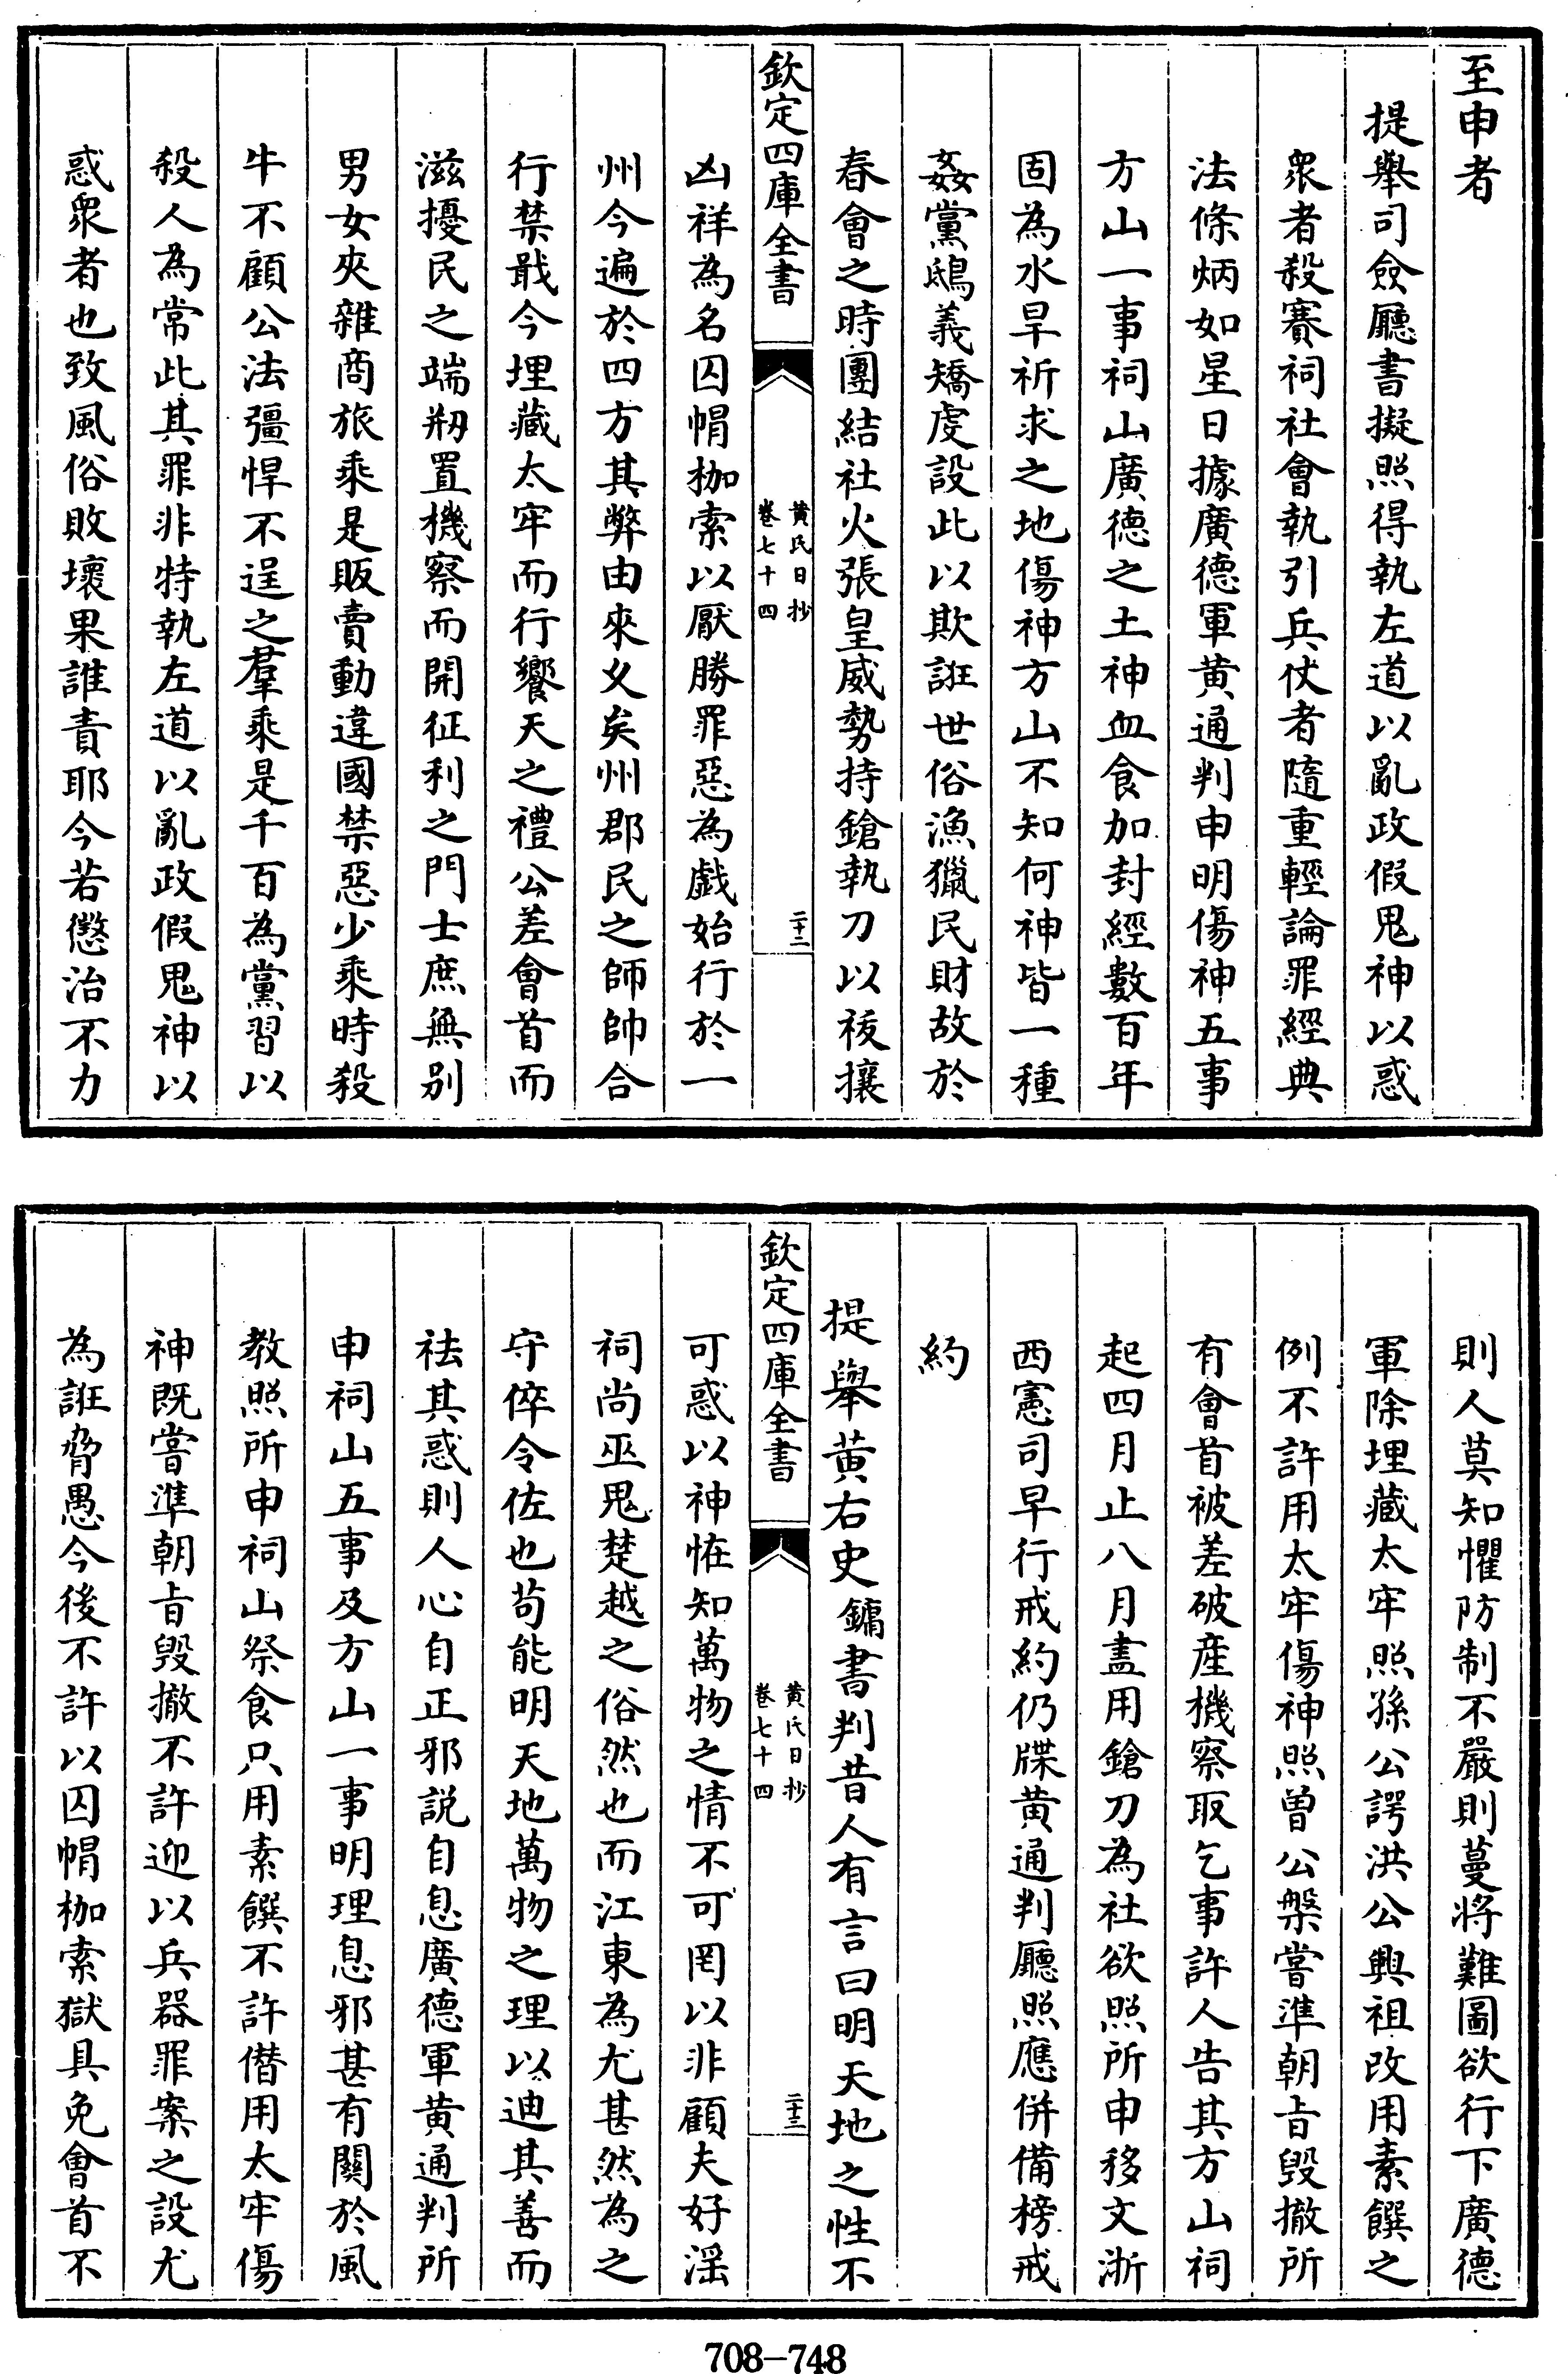 至申者
提舉司僉廳書擬照得執左道以亂政假鬼神以惑
衆者殺賽祠社會執引兵仗者隨重輕論罪經典
法條炳如星日據廣德軍黄通判申明傷神五事
方山一事祠山廣德之土神血食加封經數百年
固為水旱祈求之地傷神方山不知何神皆一種
姦黨鴟義矯虔設此以欺誑世俗漁獵民財故於
春會之時團結社火張皇威勢持鎗執刀以祓攘
欽定四庫全書
黄氏日抄
卷七十四
二十二
凶祥為名囚帽枷索以厭勝罪惡為戱始行於一
州今遍於四方其弊由來乆矣州郡民之師帥合
行禁戢今埋藏太牢而行饗天之禮公差會首而
滋擾民之端剏置機察而開征利之門士庶無别
男女夾雜商旅乘是販賣動違國禁惡少乘時殺
牛不顧公法彊悍不逞之羣乘是千百為黨習以
殺人為常此其罪非特執左道以亂政假鬼神以
惑衆者也致風俗敗壞果誰責耶今若懲治不力
則人莫知懼防制不嚴則蔓將難圖欲行下廣德
軍除埋藏太牢照孫公諤洪公興祖改用素饌之
例不許用太牢傷神照曾公槃嘗準朝旨毁撤所
有會首被差破産機察取乞事許人告其方山祠
起四月止八月盡用鎗刀為社欲照所申移文浙
西憲司早行戒約仍牒黄通判廳照應併備榜戒
約
提舉黄右史鏞書判昔人有言曰明天地之性不
欽定四庫全書
黄氏日抄
卷七十四
二十三
可惑以神恠知萬物之情不可罔以非顧夫好滛
祠尚巫鬼楚越之俗然也而江東為尤甚然為之
守倅令佐也苟能明天地萬物之理以迪其善而
袪其惑則人心自正邪説自息廣德軍黄通判所
申祠山五事及方山一事明理息邪甚有關於風
教照所申祠山祭食只用素饌不許僭用太牢傷
神既嘗準朝旨毁撤不許迎以兵器罪案之設尤
為誑脅愚今後不許以囚帽枷索獄具免會首不
708-748